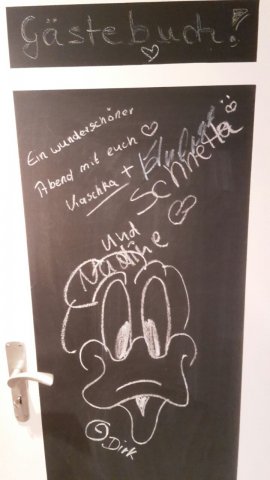 Gästebuch!
Ein wunderschöner
Abend mit euch
Vaschka +
Schnetta
und
Nadine
Dirk